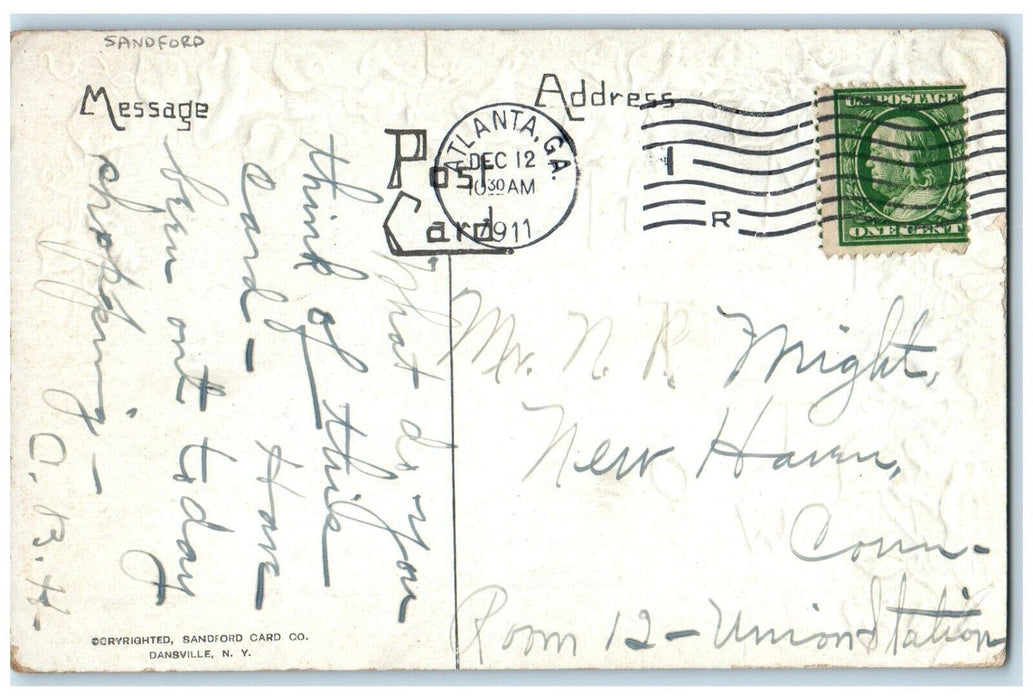 SANDFORD
Message
Address
Post
Card
ATLANTA, GA.
DEC 12
10 30 AM
1911
1
R
U.S. POSTAGE
ONE CENT
What do you
think of this
card - Have
been out today
shopping -
Mr. N. P. Wright,
New Haven,
Conn-
Room 12 - Union Station
COPYRIGHTED, SANDFORD CARD CO.
DANSVILLE, N. Y.